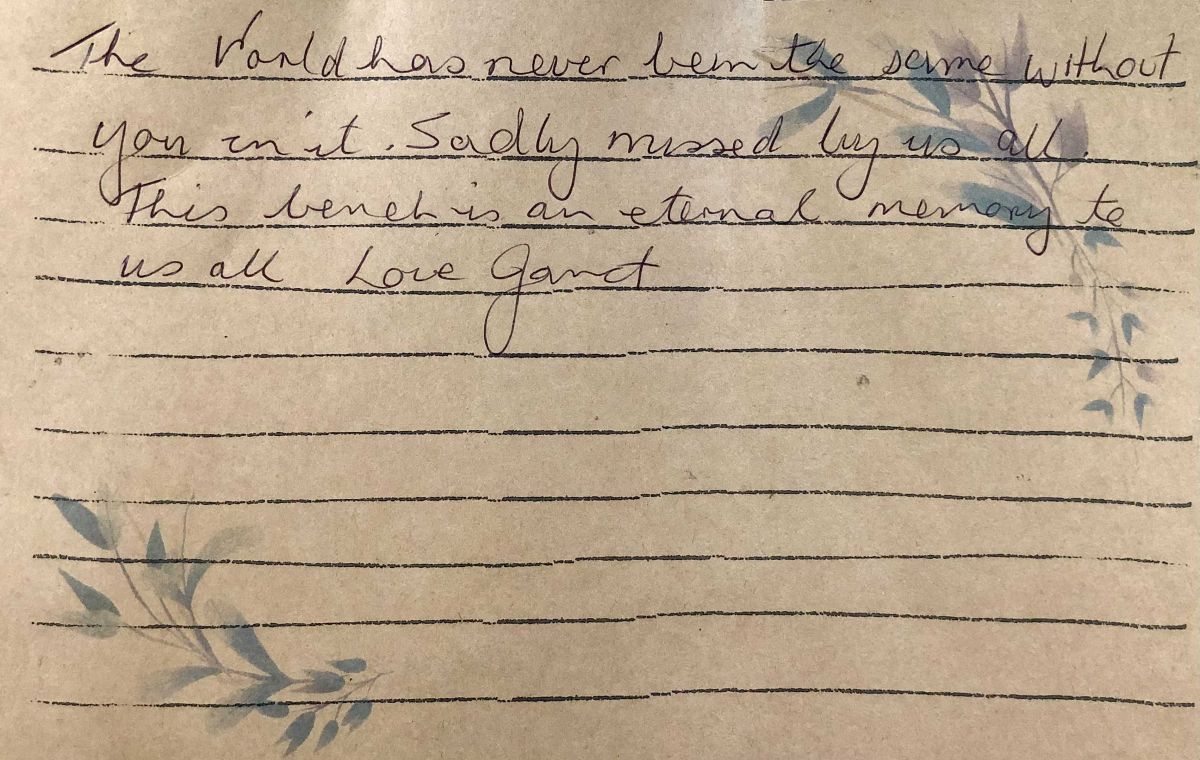 The World has never been the same without
you in it. Sadly missed by us all.
This bench is an eternal memory to
us all Love